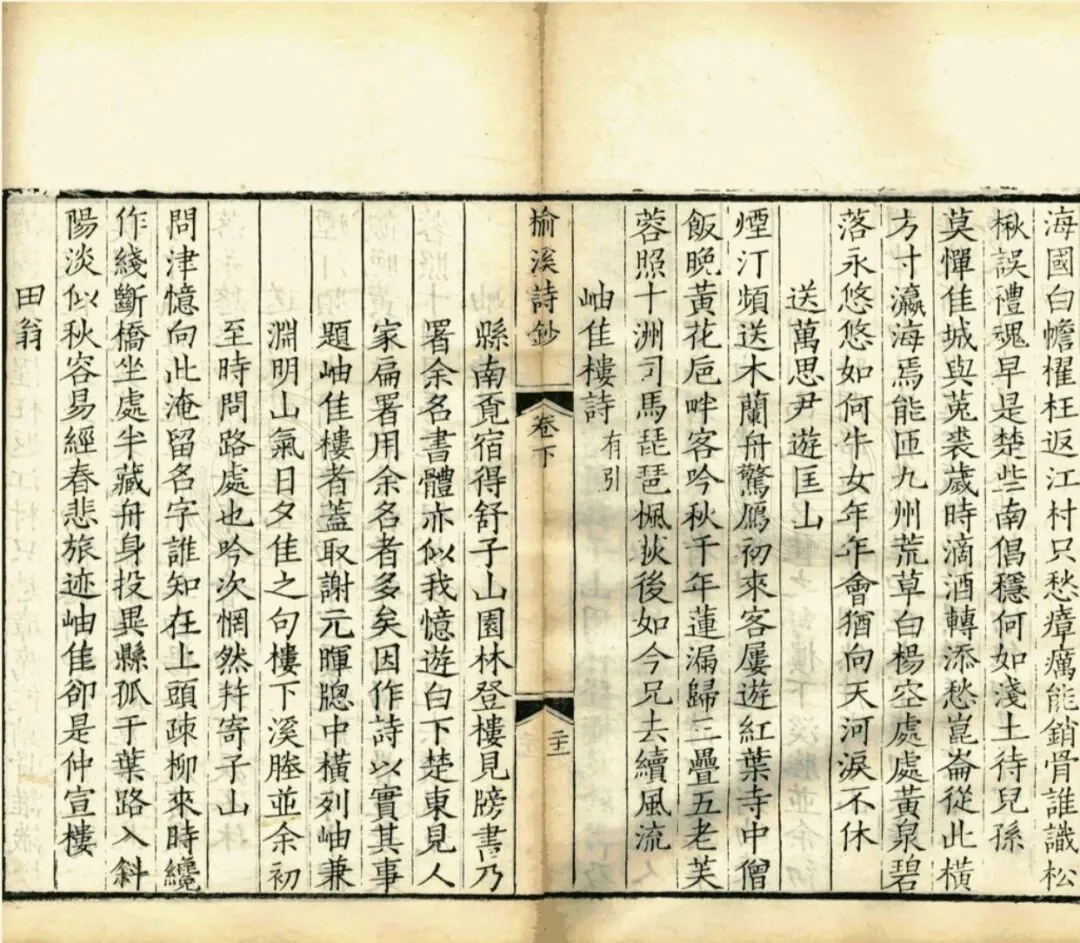 海國白幨櫂枉返江村只愁瘴癘能銷骨誰識松
楸誤禮魂早是楚些南倡穩何如淺土待兒孫
莫憚佳城與菟裘歲時滴酒轉添愁崑崙從此橫
方寸瀛海焉能匝九州荒草白楊空處處黃泉碧
落永悠悠如何牛女年年會猶向天河淚不休
送萬思尹遊匡山
煙汀頻送木蘭舟驚鴈初來客屢遊紅葉寺中僧
飯晚黃花巵畔客吟秋千年蓮漏歸三疊五老芙
蓉照十洲司馬琵琶楓荻後如今兄去續風流
岫佳樓詩 有引
榆溪詩鈔 卷下 二十一
縣南覓宿得舒子山園林登樓見牓書乃
署余名書體亦似我憶遊白下楚東見人
家扁署用余名者多矣因作詩以實其事
題岫佳樓者蓋取謝元暉牕中橫列岫兼
淵明山氣日夕佳之句樓下溪塍並余初
至時問路處也吟次惘然幷寄子山
問津憶向此淹留名字誰知在上頭疎柳來時纔
作綫斷橋坐處半藏舟身投異縣孤于葉路入斜
陽淡似秋容易經春悲旅迹岫佳卻是仲宣樓
田翁